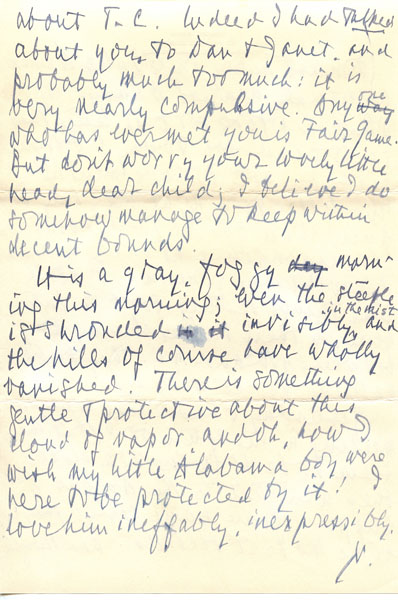 about T.C. Indeed I had talked
about you, to Dan & Janet, and
probably much too much: it is
very nearly compulsive. Any one way
who has ever met you is Fair Game.
But don't worry your lovely little
head, dear child; I believe I do
somehow manage to keep within
decent bounds.
It is a gray, foggy day morn-
ing this morning; even the steeple
is shrouded in it invisibly in the mist, and
the hills of course have wholly
vanished! There is something
gentle & protective about this
cloud of vapor and oh, how I
wish my little Alabama boy were
here to be protected by it! I
love him ineffably, inexpressibly.
N.